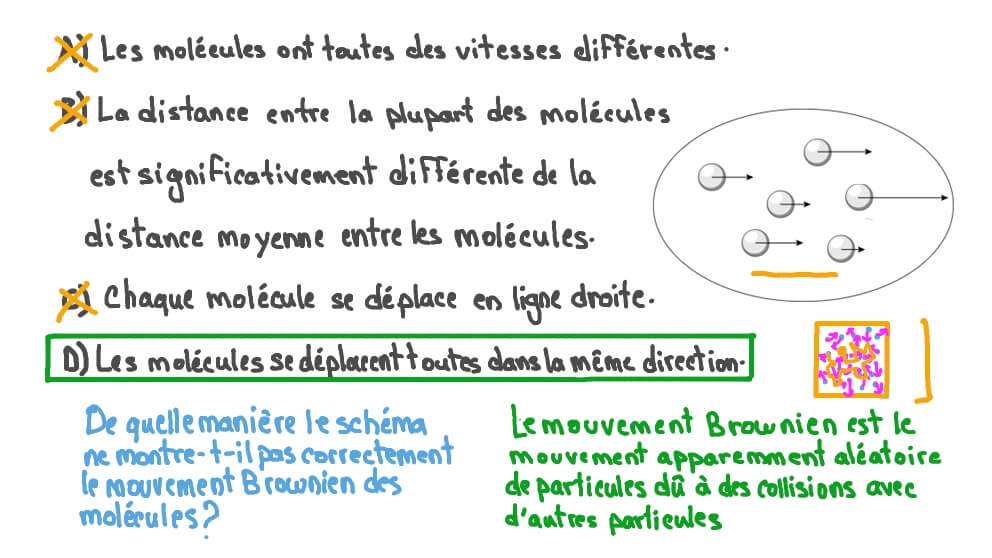 A) Les molécules ont toutes des vitesses différentes.
B) La distance entre la plupart des molécules
est significativement différente de la
distance moyenne entre les molécules.
C) Chaque molécule se déplace en ligne droite.
D) Les molécules se déplacent toutes dans la même direction.
De quelle manière le schéma
ne montre-t-il pas correctement
le mouvement Brownien des
molécules?
Le mouvement Brownien est le
mouvement apparemment aléatoire
de particules dû à des collisions avec
d'autres particules